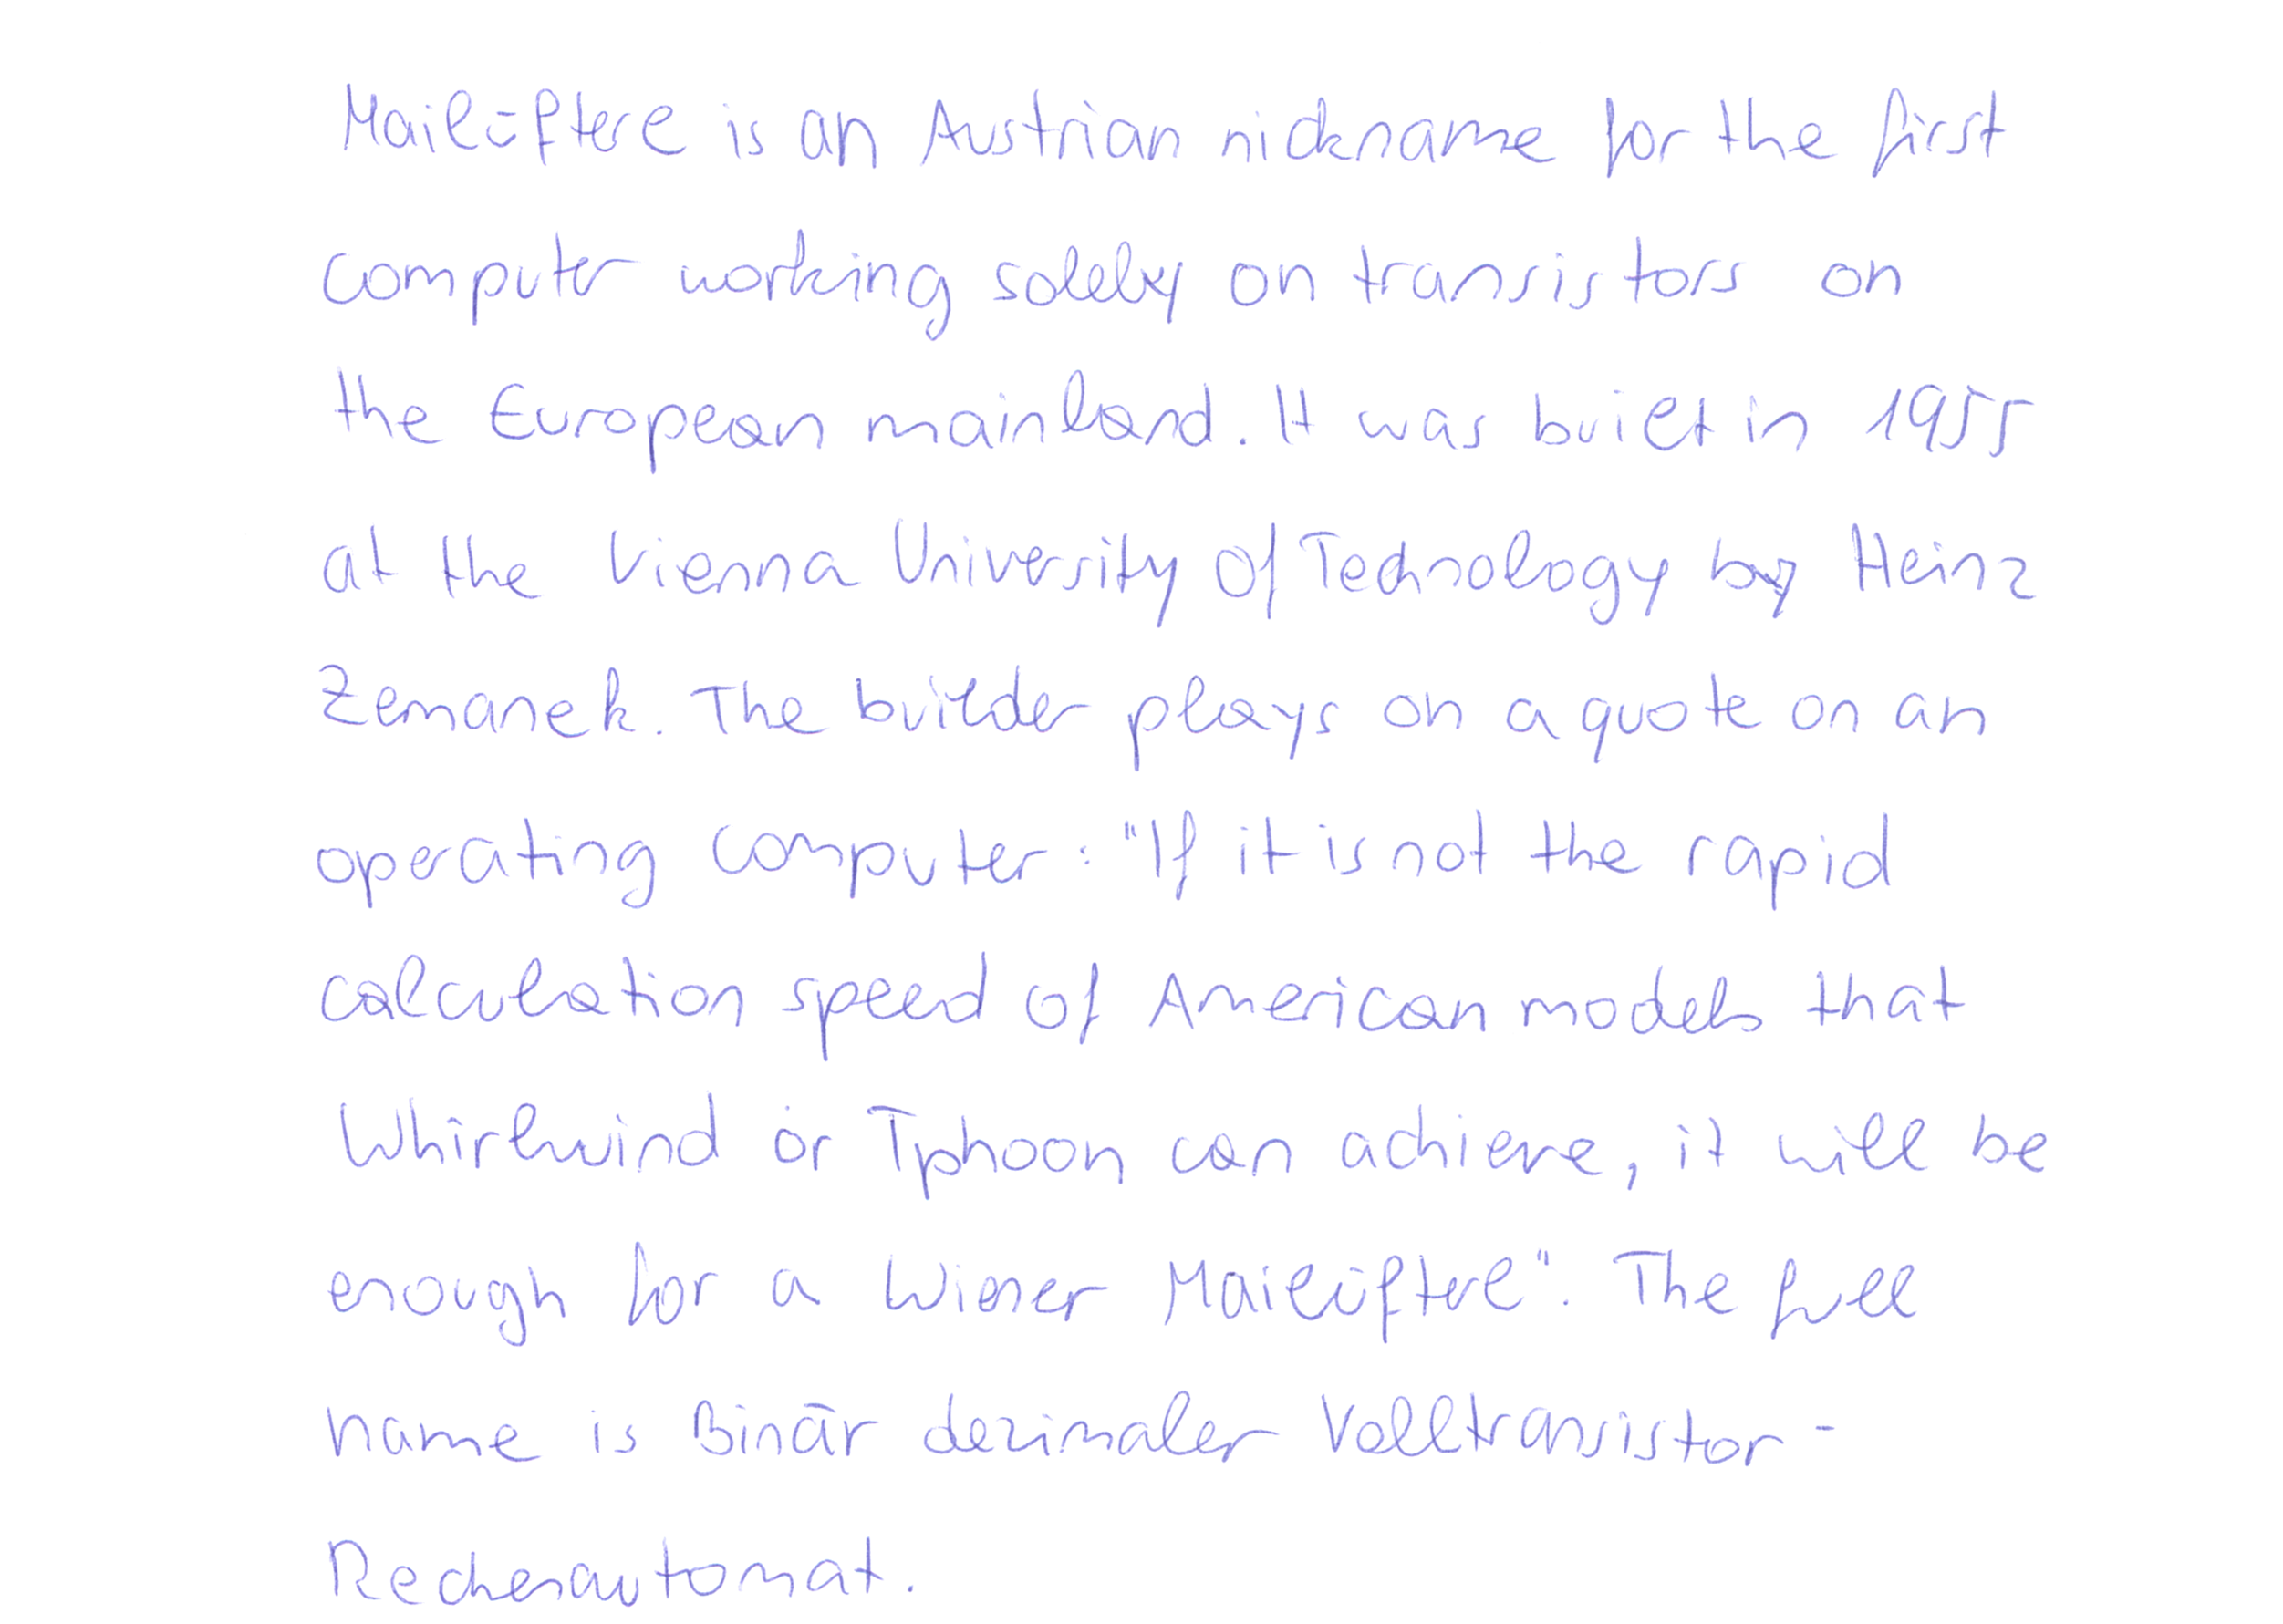 Mailüfterl is an Austrian nickname for the first
computer working solely on transistors on
the European mainland. It was built in 1955
at the Vienna University of Technology by Heinz
Zemanek. The builder plays on a quote on an
operating computer: "If it is not the rapid
calculation speed of American models that
Whirlwind or Tphoon can achieve, it will be
enough for a Wiener Mailüfterl". The full
name is Binär dezimaler Volltransistor-
Rechenautomat.